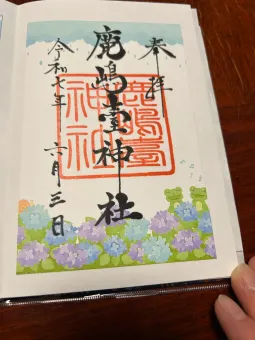 奉拝
鹿嶋臺神社
令和七年 六月三日
鹿嶋臺
神社